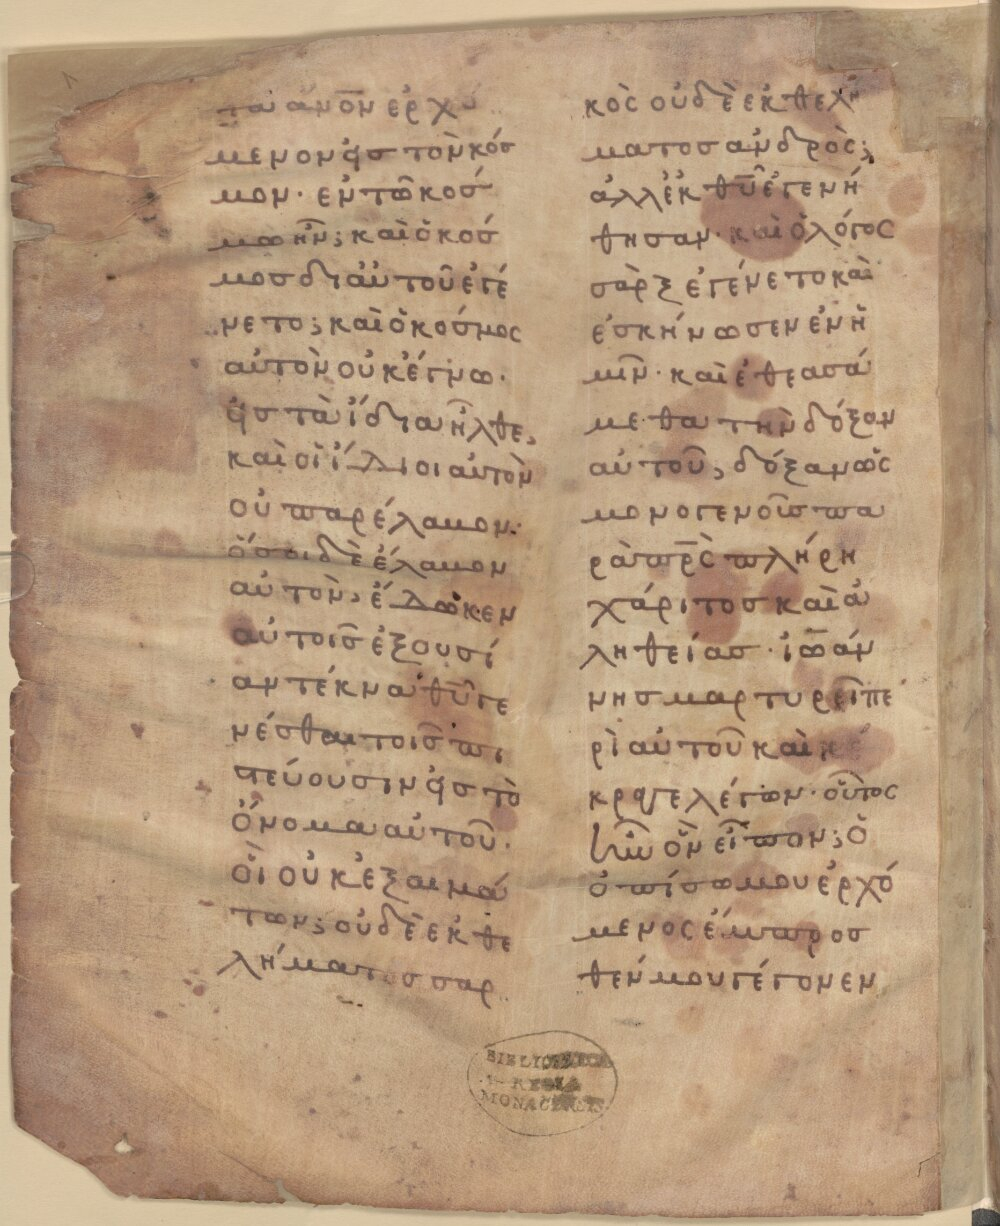 τα ἄνον ἐρχό
μενον εἰσ τὸν κόσ
μον· ἐν τῶ κοσ
μω ἦν; καὶ ὁ κοσ
μοσ δι αὐτοῦ ἐγέ
νετο; καὶ ὁ κόσμος
αὐτὸν οὐκ ἔγνω·
εἰσ τὰ ἴδια ἦλθε,
καὶ οἱ ἴδιοι αὐτὸν
οὐ παρέλαβον:
ὅσοι δὲ ἔλαβον
αὐτὸν, ἔδωκεν
αὐτοισ ἐξουσί
αν τέκνα θῦ γε
νέσθαι τοισ πι
στεύουσιν εἰσ τὸ
ὄνομα αὐτοῦ·
οἳ οὐκ ἐξ αιμά
των; οὐδὲ ἐκ θε
λήματοσ σαρ
κὸς οὐδὲ ἐκ θελή
ματοσ ἀνδρὸς;
ἀλλ ἐκ θῦ ἐγενή
θησαν· καὶ ὁ λόγος
σὰρξ ἐγένετο καὶ
ἐσκήνωσεν ἐν ἡ
μῖν· καὶ ἐθεασά
μεθα τὴν δόξαν
αὐτοῦ, δόξαν ὡς
μονογενοῦσ πα
ρὰ πρς πλήρη
χάριτοσ καὶ ἀ
ληθείασ· ἰωάν
νησ μαρτυρεῖ πε
ρὶ αὐτοῦ καὶ κέ
κραγε λέγων· οὗτος
ἦν ὃν εἶπον; ὁ
ὀπίσω μου ἐρχό
μενος ἔμπροσ
θέν μου γέγονεν
BIBLIOTHECA
REGIA
MONACENSIS